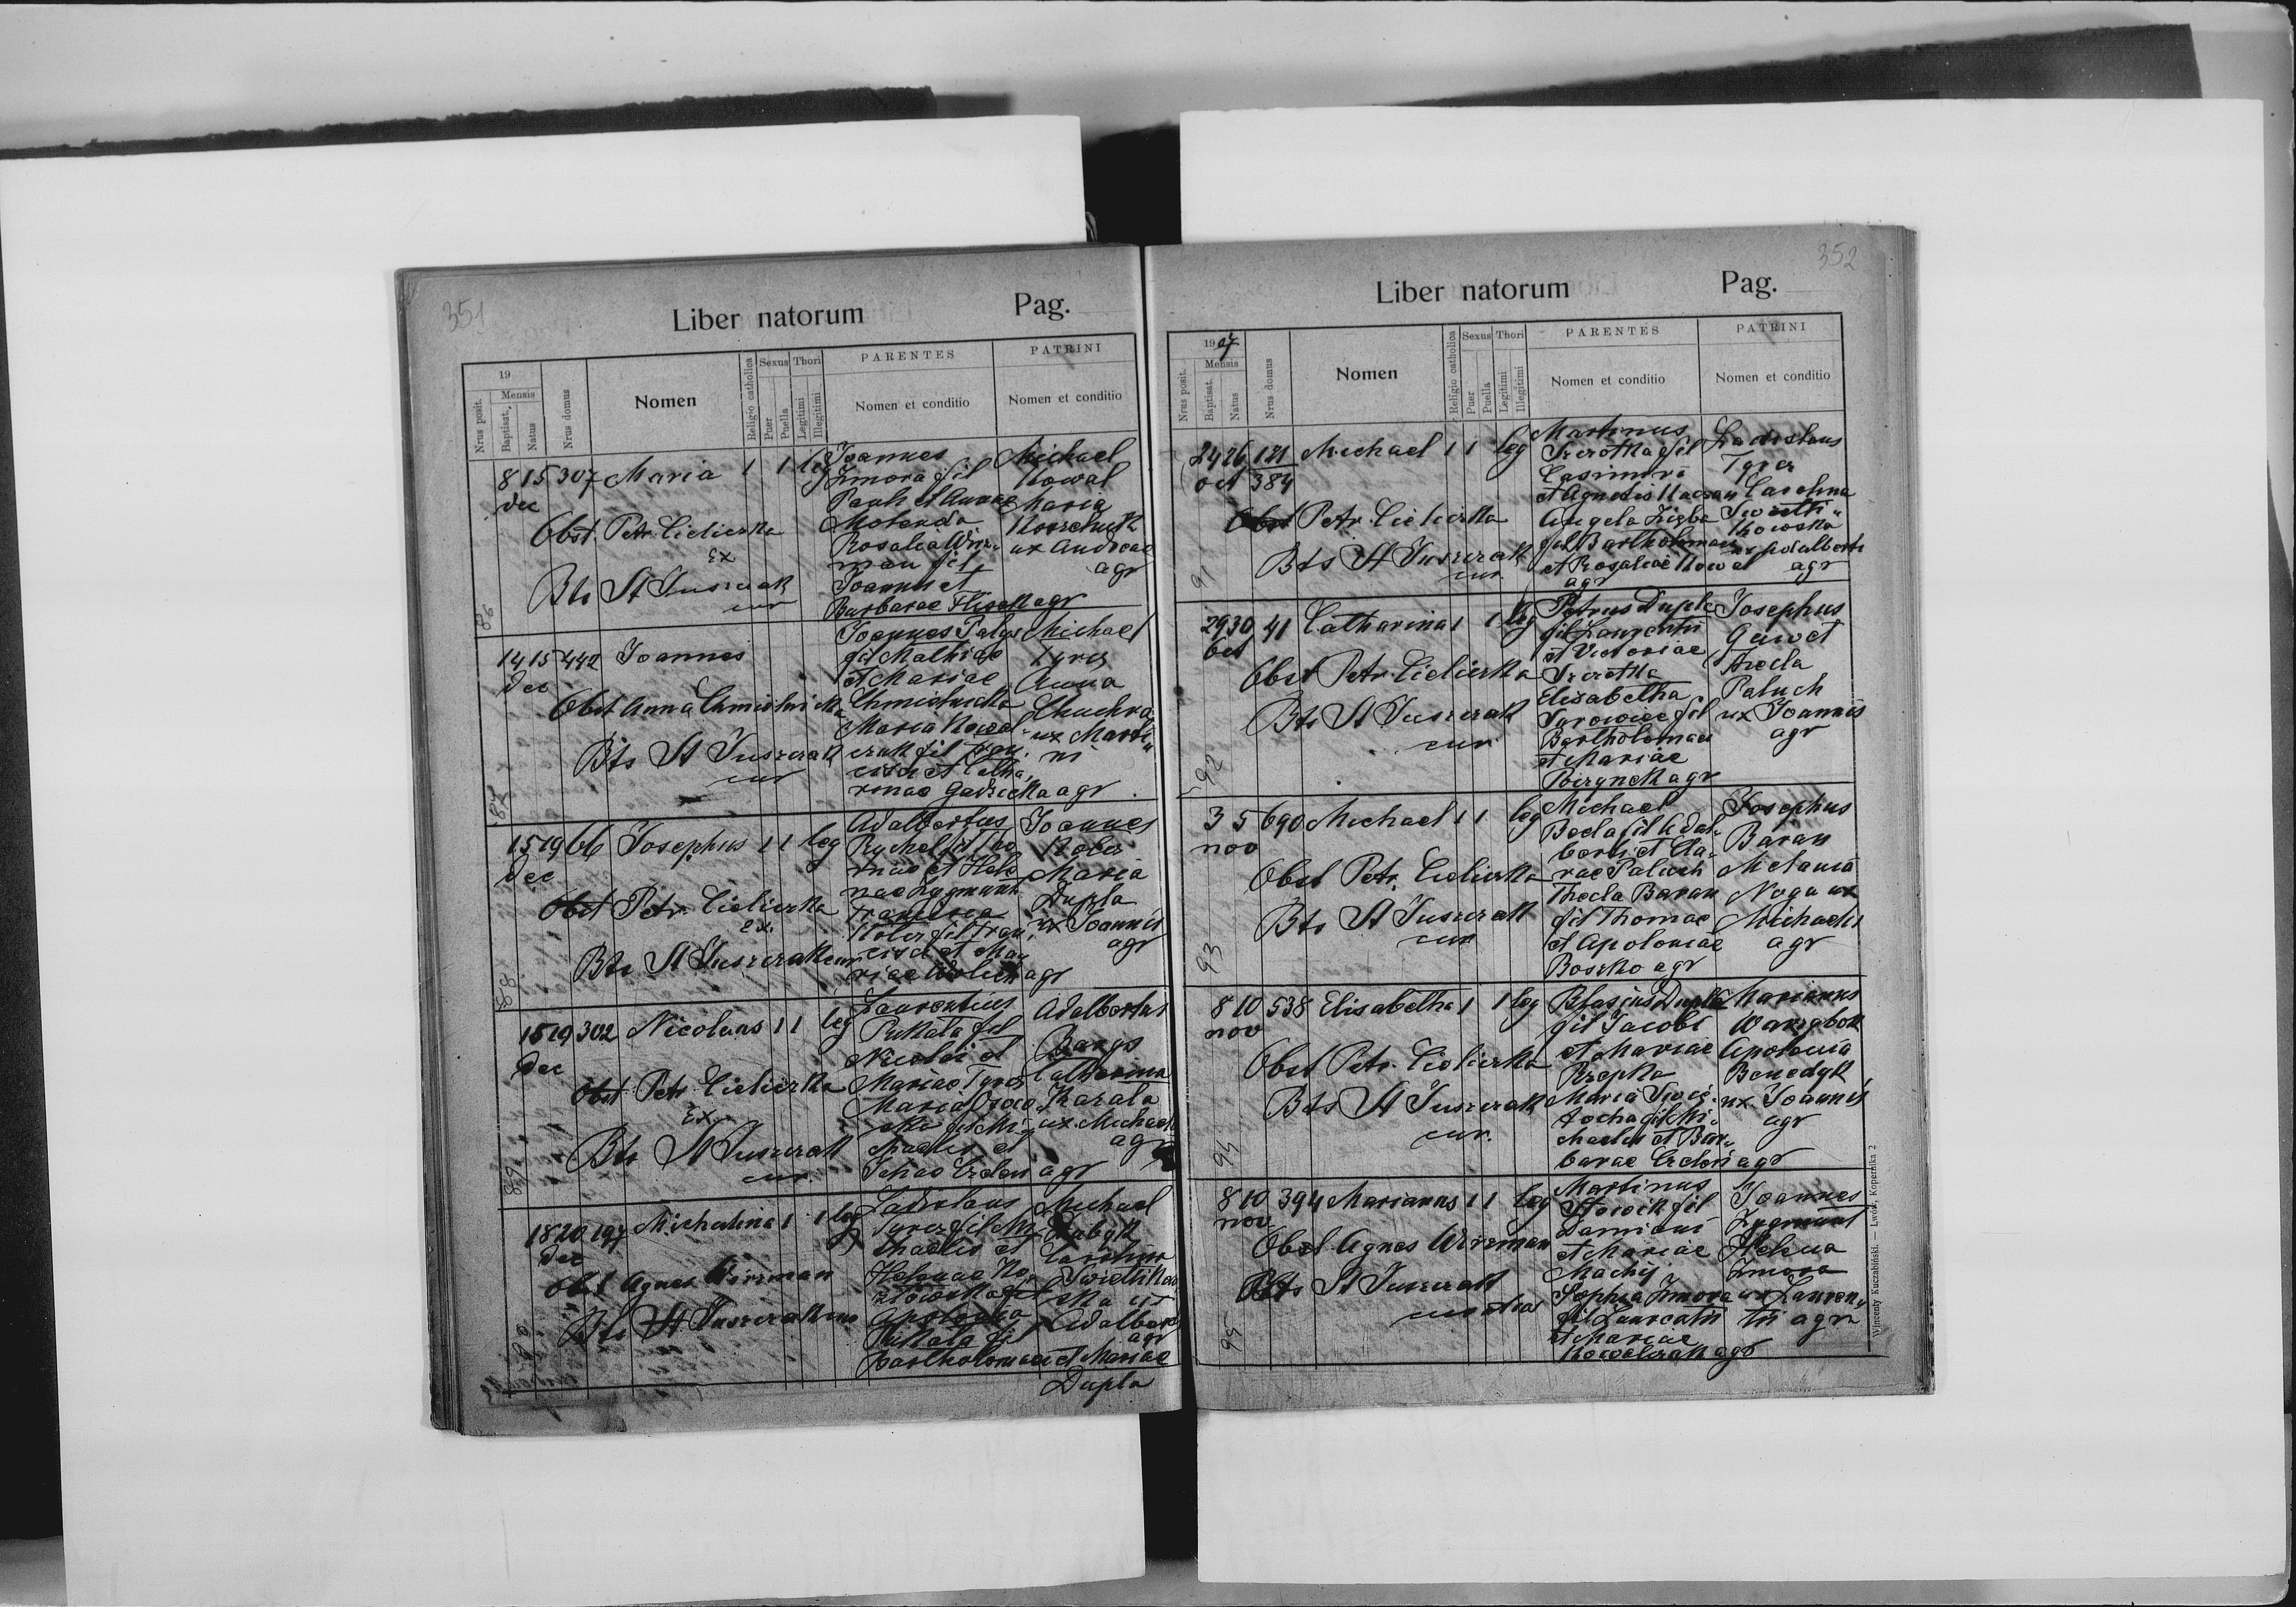 351
Liber natorum Pag.
19
Mensis
Nrus posit.
Baptisat.
Natus
Nrus domus
Nomen
Religio catholica
Sexus
Puer
Puella
Thori
Legitimi
Illegitimi
PARENTES
Nomen et conditio
PATRINI
Nomen et conditio
86
8 15 307 Maria 1 1 leg
Dec
Obst. Petr. Cielierka
Ex
Bts St Juszczak
cur
Joannes
Zmora fil
Pauli et Annae
Motenda
Rosalia Wirz-
man fil
Joannis et
Barbarae Flisak agr
Michael
Kowal
Maria
Korzchuk
ux Andreae
agr
87
14 15 442 Joannes
Dec
Obst Anna Chmielnicka
Bts St Juszczak
cur
Joannes Palys
fil Mathiae
et Mariae
Chmielnicka
Maria Kowal-
czak fil Fran
cisci et Catha
rinae Gadzicka agr
Michael
Tyrcz
Anna
Chuchra
ux Marti
ni
88
15 19 66 Josephus 1 1 leg
Dec
Obst Petr. Cielierka
Ex.
Bts St Juszczak cur
Adalbertus
Rychel fil Tho
mae et Hele
nae Zygmunt
Francisca
Kolcz fil Fran
cisci et Ma
riae Wolich agr
Joannes
Kolcz
Maria
Dupla
ux Joannis
agr
89
18 19 302 Nicolaus 1 1 leg
Dec
Obst Petr. Cielierka
Ex
Bts St Juszczak
cur
Laurentius
Pukala fil
Nicolai et
Mariae Tyrcz
Maria
fil Mi
chaelis et
agr
Adalbertus
Barys
Catharina
Karala
ux Michaelis
agr
18 20 197 Michalina 1 1 leg
Dec
Obst Agnes Wirzman
Bts St Juszczak cur
Ladislaus
Tyrcz fil Mi
chaelis et
Helenae Ko
Apolonia
Pukala fil
Bartholomaei et Mariae
Dupla
Michael
Carolina
ux
Adalberti
agr
352
Liber natorum Pag.
1907
Mensis
Nrus posit.
Baptisat.
Natus
Nrus domus
Nomen
Religio catholica
Sexus
Puer
Puella
Thori
Legitimi
Illegitimi
PARENTES
Nomen et conditio
PATRINI
Nomen et conditio
91
24 26 121 Michael 1 1 leg
Oct 384
Obst Petr. Cielierka
Bts St Juszczak
cur.
Martinus
Szerotka fil
Casimiri
et Agnetis Kaczan
Angela Zięba
fil Bartholomaei
et Rosaliae Kowal
agr
Ladislaus
Tyrcz
Carolina
Swietli-
kowska
ux Adalberti
agr
92
29 30 41 Catharina 1 1 leg
Oct
Obst Petr. Cielierka
Bts St Juszczak
cur
Petrus Dupla
fil Laurentii
et Victoriae
Szerotka
Elisabetha
Surowiec fil
Bartholomaei
et Mariae
agr
Josephus
Gaw et
Thecla
Paluch
ux Joannis
agr
93
3 5 690 Michael 1 1 leg
nov
Obst Petr. Cielierka
Bts St Juszczak
cur
Michael
Becla fil Adal-
berti et Cla-
rae Paluch
Thecla Baran
fil Thomae
et Apoloniae
Boszko agr
Josephus
Baran
Melania
Noga ux
Michaelis
agr
94
8 10 538 Elisabetha 1 1 leg
nov
Obst Petr. Cielierka
Bts St Juszczak
cur.
Blasius Dupla
fil Jacobi
et Mariae
Rzepka
Maria Swie-
tocha fil Mi-
chaelis et Bar-
barae agr
Marianus
Apolonia
Benedyk
ux Joannis
agr
95
8 10 394 Marianus 1 1 leg
nov
Obst Agnes Wirzman
Bts St Juszczak
Martinus
fil
Damiani
et Mariae
Machij
Sophia Zmora
fil Laurentii
et Mariae
Kowalczak agr
Joannes
Zygmunt
Helena
Zmora
ux Lauren-
tii agr
Wincenty Kuczabiński. — Lwów, Kopernika 2